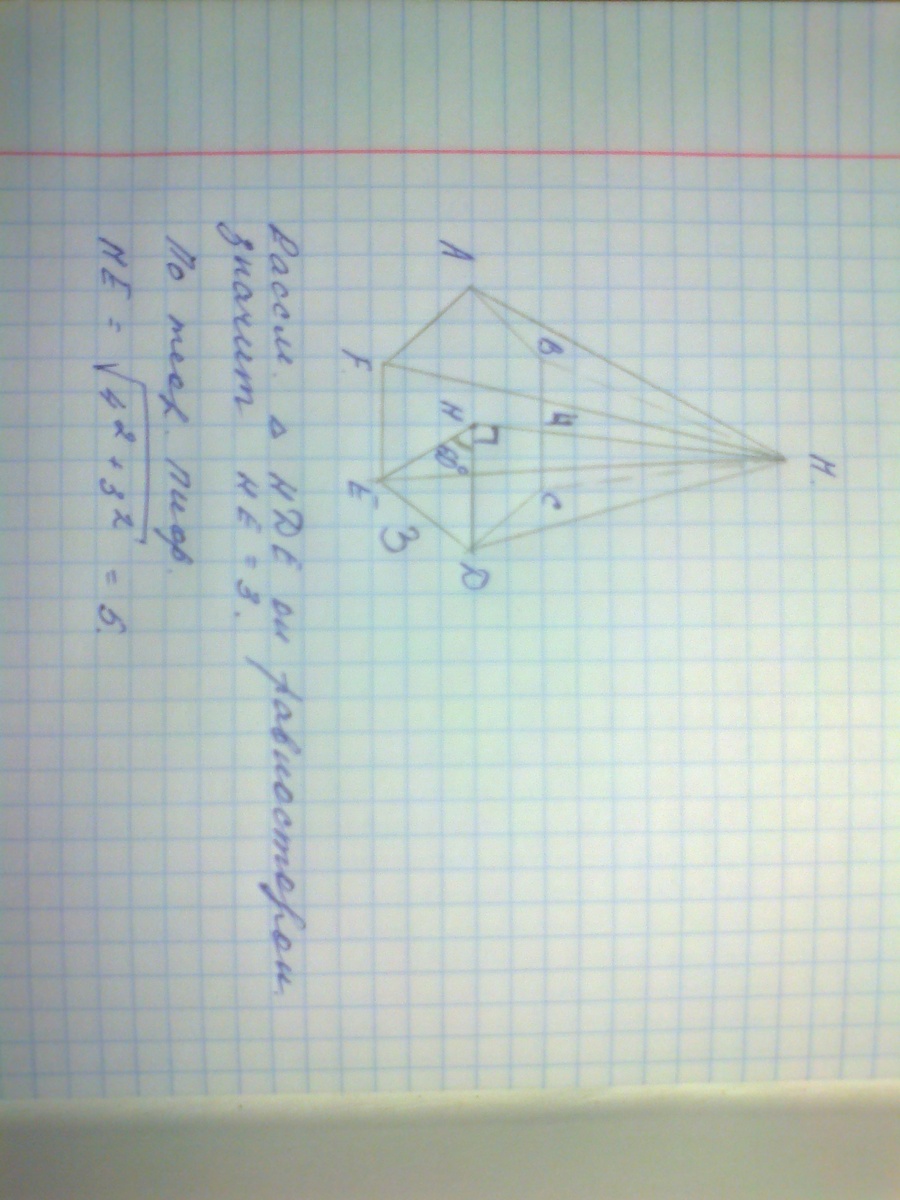 М.
B
4
C
A
H
60°
D
F
E
3
Рассм. △ HDE он равностороен.
значит HE = 3.
По теор. Пиф.
ME = √4² + 3² = 5.